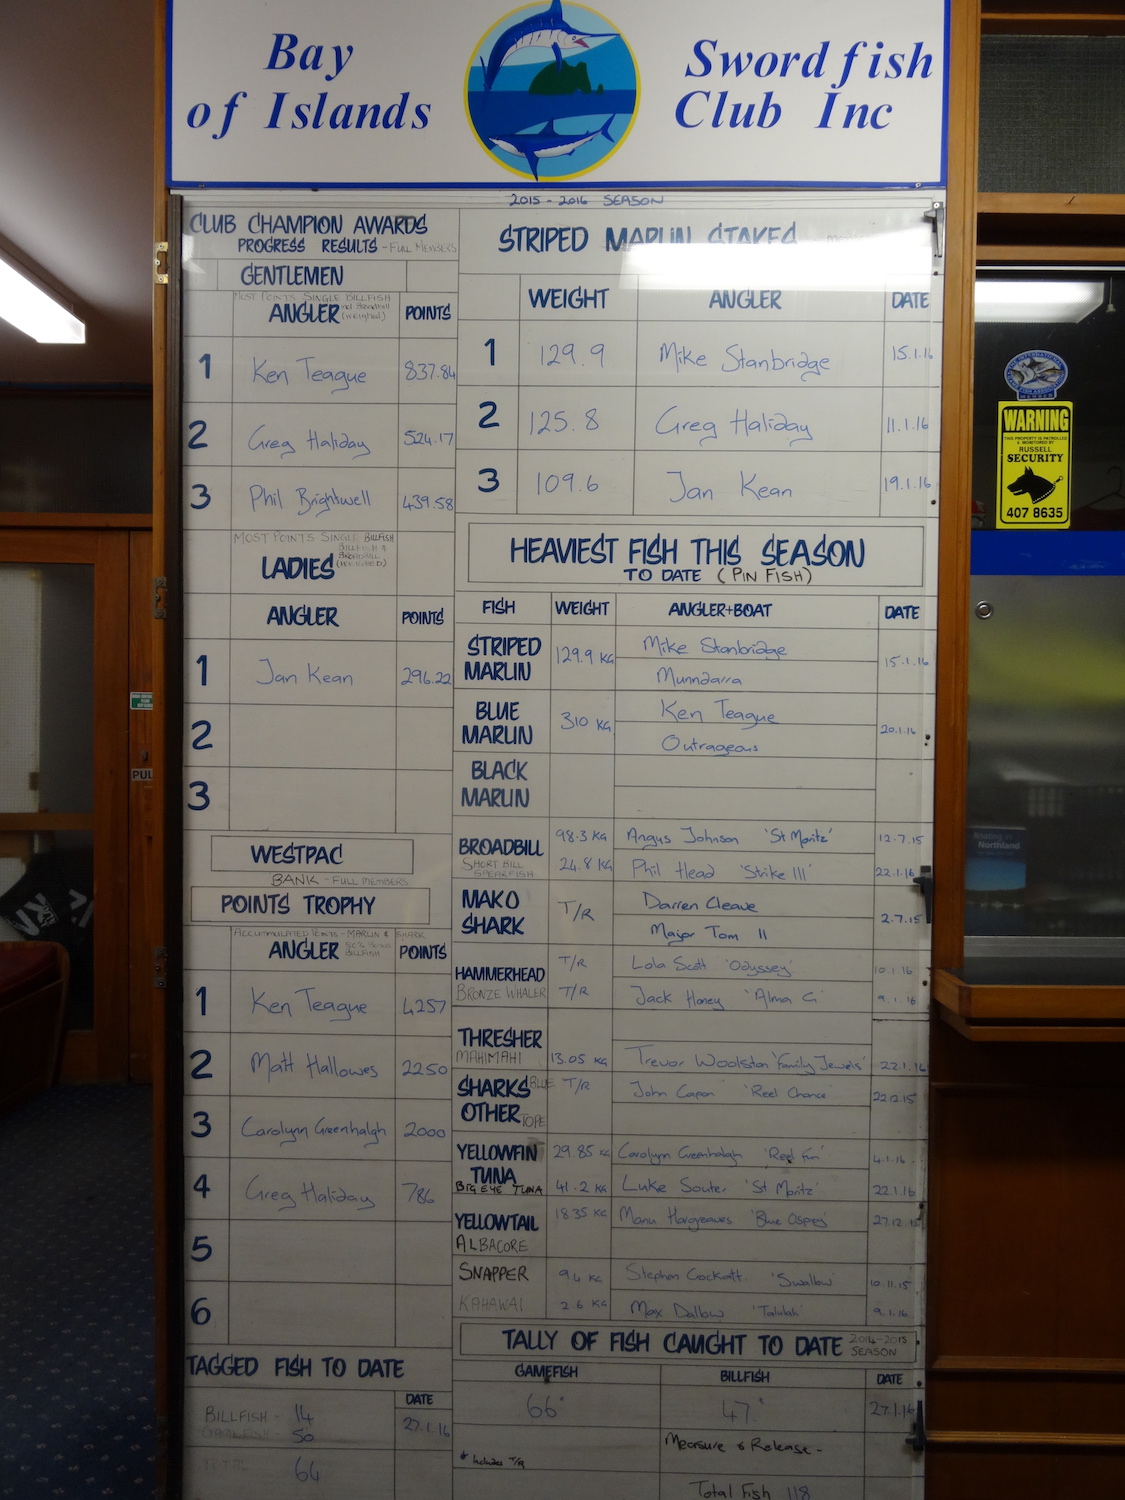 Bay
of Islands
Swordfish
Club Inc
2015 - 2016 SEASON
CLUB CHAMPION AWARDS
PROGRESS RESULTS - FULL MEMBERS
GENTLEMEN
MOST POINTS SINGLE BILLFISH
ANGLER (WEIGHED) POINTS
1 Ken Teague 837.84
2 Greg Haliday 524.17
3 Phil Brightwell 439.58
MOST POINTS SINGLE BILLFISH
BILLFISH &
BROADBILL
LADIES (WEIGHED)
ANGLER POINTS
1 Jan Kean 296.22
2
3
WESTPAC
BANK - FULL MEMBERS
POINTS TROPHY
ACCUMULATED POINTS - MARLIN & SHARK
ANGLER BILLFISH POINTS
1 Ken Teague 4257
2 Matt Hallowes 2250
3 Carolynn Greenhalgh 2000
4 Greg Haliday 786
5
6
TAGGED FISH TO DATE
DATE
BILLFISH - 14 27.1.16
GAMEFISH - 50
TOTAL 64
STRIPED MARLIN STAKES
WEIGHT ANGLER DATE
1 129.9 Mike Stanbridge 15.1.16
2 125.8 Greg Haliday 11.1.16
3 109.6 Jan Kean 19.1.16
HEAVIEST FISH THIS SEASON
TO DATE (PIN FISH)
FISH WEIGHT ANGLER+BOAT DATE
STRIPED MARLIN 129.9 KG Mike Stanbridge 15.1.16
Munndarra
BLUE MARLIN 310 KG Ken Teague 20.1.16
Outrageous
BLACK MARLIN
BROADBILL 98.3 KG Angus Johnson 'St Moritz' 12.7.15
SHORT BILL SPEARFISH 24.8 KG Phil Head 'Strike III' 22.1.16
MAKO SHARK T/R Darren Cleave 2.7.15
Major Tom II
HAMMERHEAD T/R Lola Scott 'Odyssey' 10.1.16
BRONZE WHALER T/R Jack Honey 'Alma G' 9.1.16
THRESHER
MAHIMAHI 13.05 KG Trevor Woolston 'Family Jewels' 22.1.16
SHARKS BLUE T/R John Capon 'Reel Chance' 22.12.15
OTHER TOPE
YELLOWFIN TUNA 29.85 KG Carolynn Greenhalgh 'Reel Fun' 4.1.16
BIG EYE TUNA 41.2 KG Luke Souter 'St Moritz' 22.1.16
YELLOWTAIL 18.35 KG Manu Hargreaves 'Blue Osprey' 27.12.15
ALBACORE
SNAPPER 9.4 KG Stephen Cockatt 'Swallow' 10.11.15
KAHAWAI 2.6 KG Max Dallow 'Talulah' 9.1.16
TALLY OF FISH CAUGHT TO DATE 2014-2015 SEASON
GAMEFISH BILLFISH DATE
66* 47* 27.1.16
Measure & Release -
* Includes T/R
Total Fish 118
THE INTERNATIONAL
MEMBER
WARNING
THIS PROPERTY IS PATROLLED
& MONITORED BY
RUSSELL
SECURITY
407 8635
Boating in
Northland
PUL